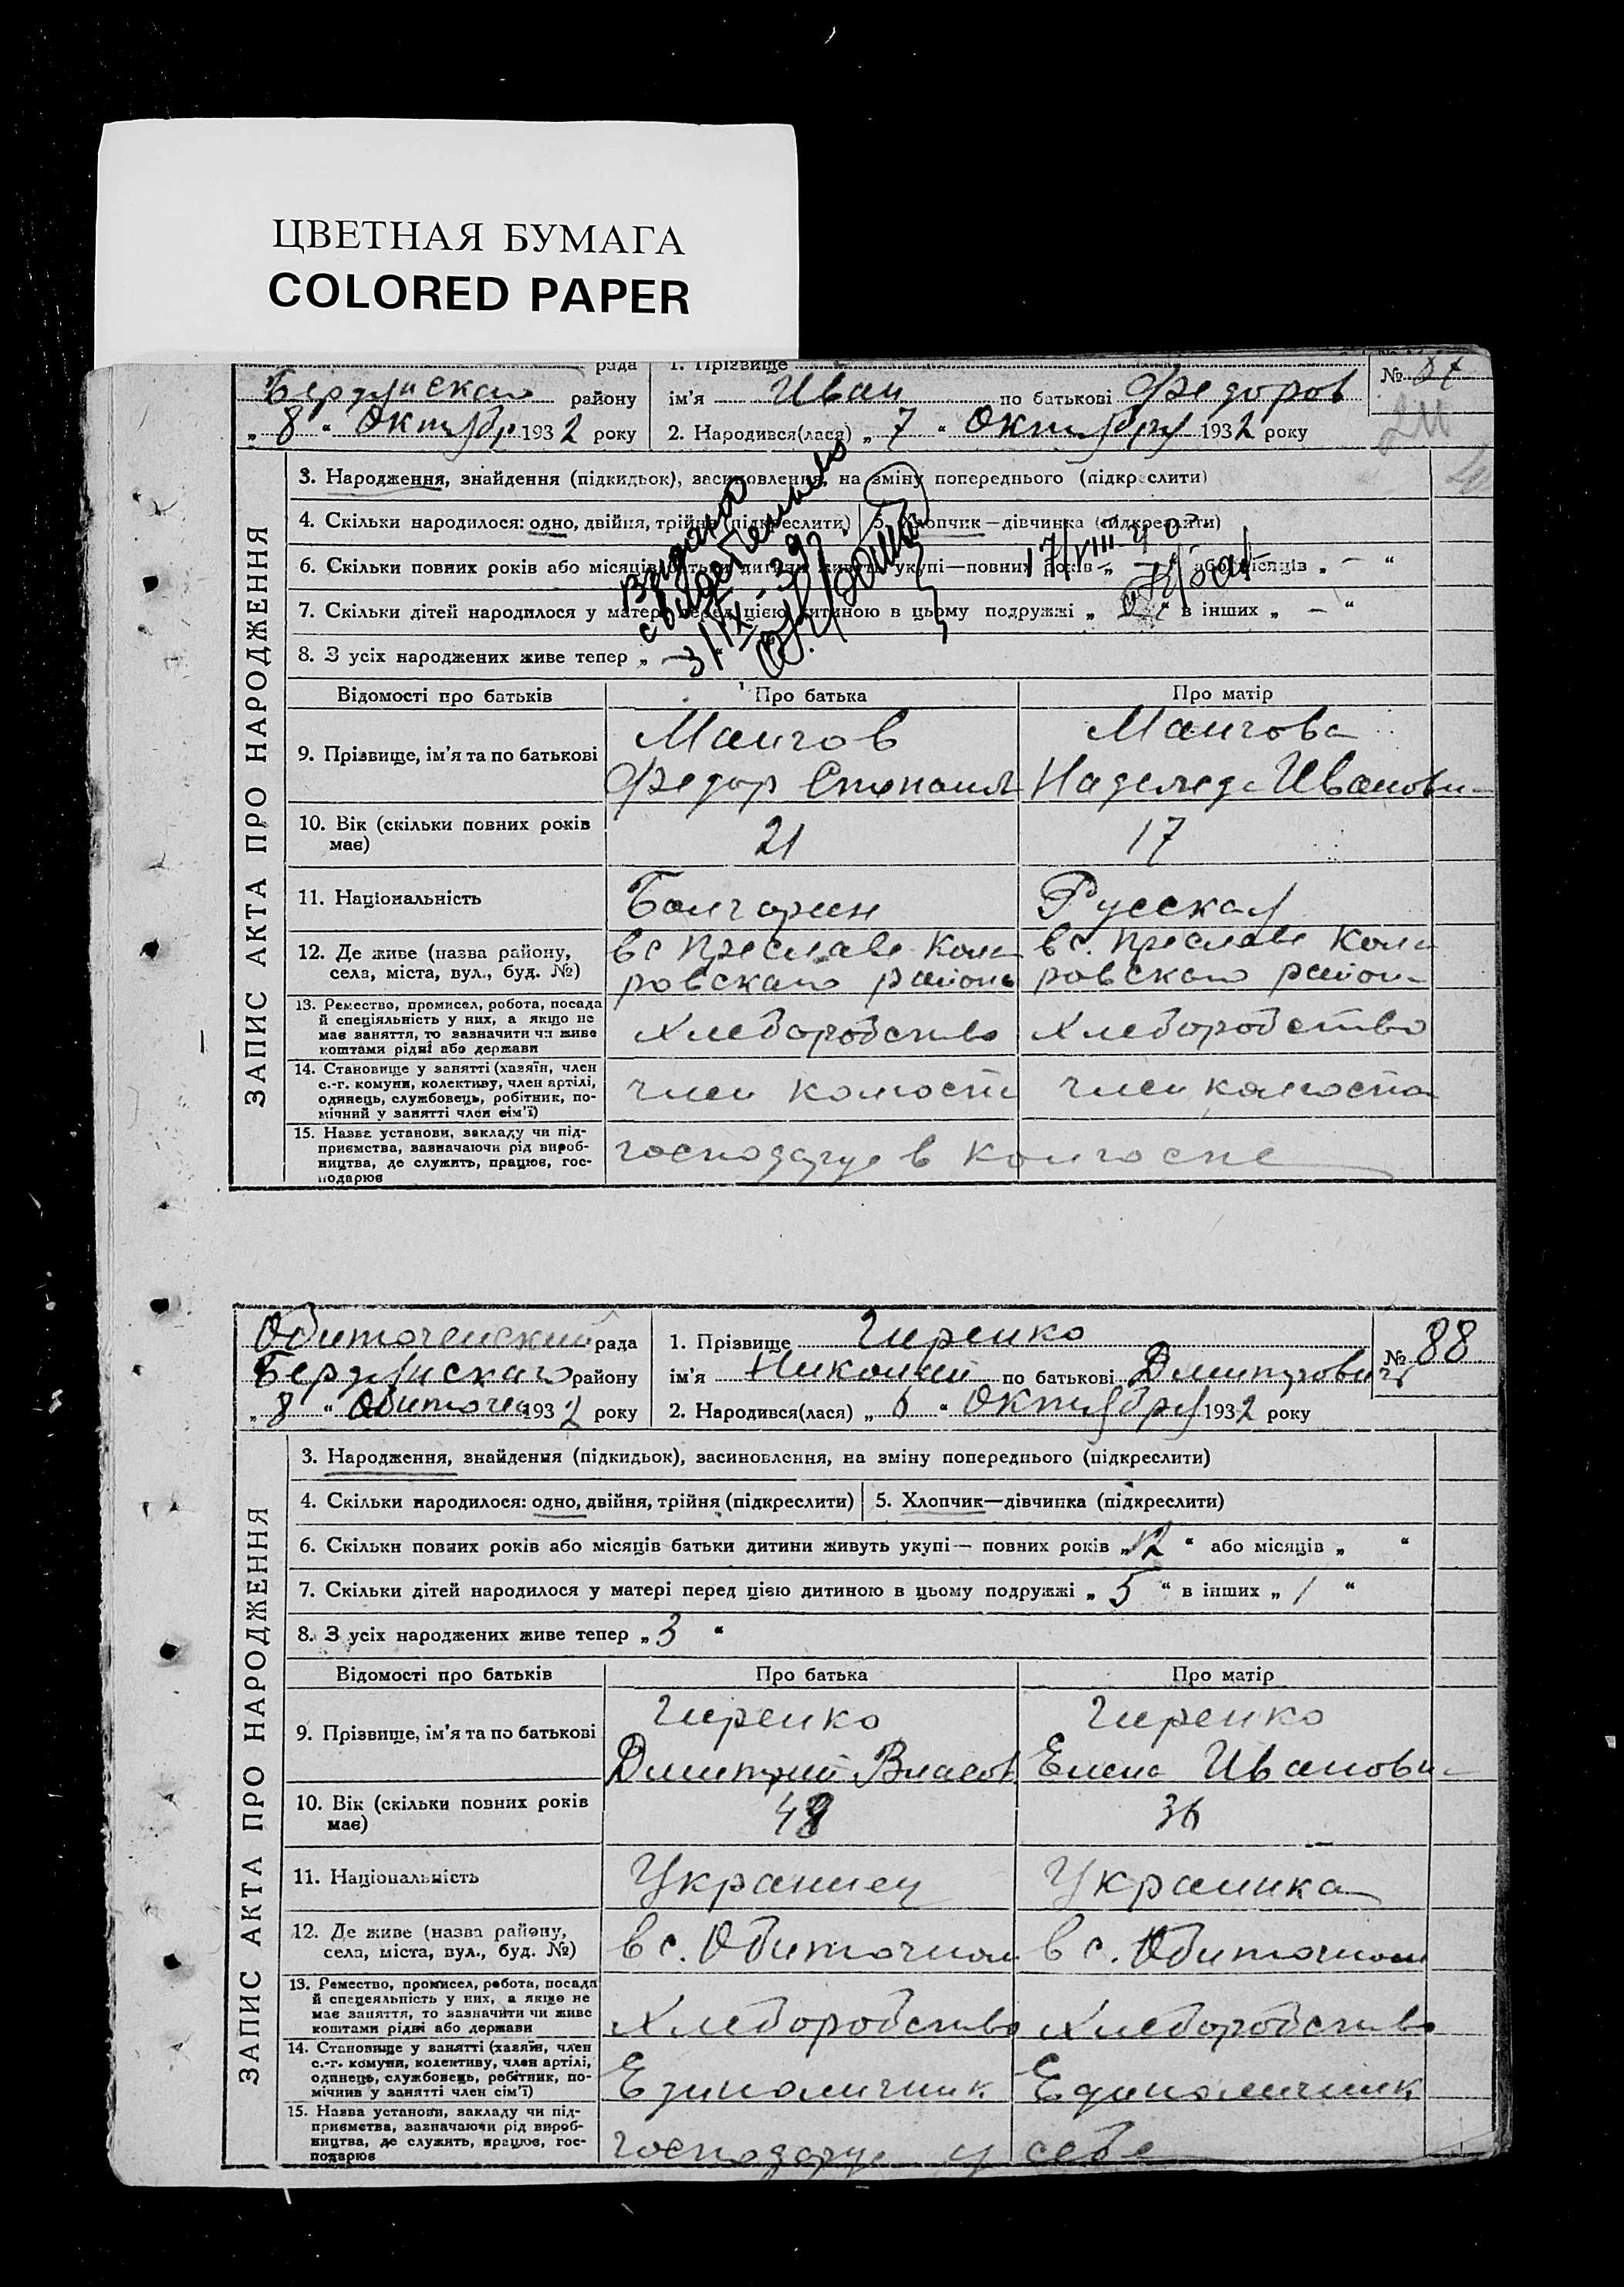 ЦВЕТНАЯ БУМАГА
COLORED PAPER
рада 1. Прізвище
Бердянскаго району ім'я Иван по батькові Федоров № 87
„ 8 “ Октябр 1932 року 2. Народився(лася) „ 7 “ Октября 1932 року
ЗАПИС АКТА ПРО НАРОДЖЕННЯ
3. Народження, знайдення (підкидьок), засиновлення, на зміну попереднього (підкреслити)
4. Скільки народилося: одно, двійня, трійня (підкреслити) 5. Хлопчик—дівчинка (підкреслити)
6. Скільки повних років або місяців батьки дитини живуть укупі—повних років „ — “ або місяців „ — “
7. Скільки дітей народилося у матері перед цією дитиною в цьому подружжі „ “ в інших „ — “
8. З усіх народжених живе тепер „ — “
Видано
свидетельство
3/IX-39
17/VIII-40
Відомості про батьків Про батька Про матір
9. Прізвище, ім'я та по батькові
Манчов Манчова
Федор Степанов Надежда Ивановн
10. Вік (скільки повних років має) 21 17
11. Національність Болгарин Русская
12. Де живе (назва району, села, міста, вул., буд. №)
в с Преславе Кола в с. Преславе Кола
ровскаго района ровскаго район
13. Ремество, промисел, робота, посада
й спеціяльність у них, а якщо не
має заняття, то зазначити чи живе
коштами рідні або держави
Хлеборобство Хлеборобство
14. Становище у занятті (хазяїн, член
с.-г. комуни, колективу, член артілі,
одинець, службовець, робітник, по-
мічний у занятті член сім'ї)
член колгосп член колгоспа
15. Назва установи, закладу чи під-
приємства, зазначаючи рід вироб-
ництва, де служить, працює, гос-
подарює
господарує в колгоспе
Обиточенский рада 1. Прізвище Гиренко № 88
Бердянскаго району ім'я Николай по батькові Дмитрович
„ 8 “ Обиточна 1932 року 2. Народився(лася) „ 6 “ Октября 1932 року
ЗАПИС АКТА ПРО НАРОДЖЕННЯ
3. Народження, знайдення (підкидьок), засиновлення, на зміну попереднього (підкреслити)
4. Скільки народилося: одно, двійня, трійня (підкреслити) 5. Хлопчик—дівчинка (підкреслити)
6. Скільки повних років або місяців батьки дитини живуть укупі— повних років „ 12 “ або місяців „ “
7. Скільки дітей народилося у матері перед цією дитиною в цьому подружжі „ 5 “ в інших „ / “
8. З усіх народжених живе тепер „ 3 “
Відомості про батьків Про батька Про матір
9. Прізвище, ім'я та по батькові
Гиренко Гиренко
Дмитрий Власов Елена Ивановн
10. Вік (скільки повних років має) 48 36
11. Національність Украинец Украинка
12. Де живе (назва району, села, міста, вул., буд. №)
в с. Обиточном в с. Обиточном
13. Ремество, промисел, робота, посада
й спецеяльність у них, а якщо не
має заняття, то зазначити чи живе
коштами рідні або держави
Хлеборобство Хлеборобство
14. Становище у занятті (хазяїн, член
с.-г. комуни, колективу, член артілі,
одинець, службовець, робітник, по-
мічник у занятті член сім'ї)
Единоличник Единоличник
15. Назва установи, закладу чи під-
приємства, зазначаючи рід вироб-
ництва, де служить, працює, гос-
подарює
господарує у себе